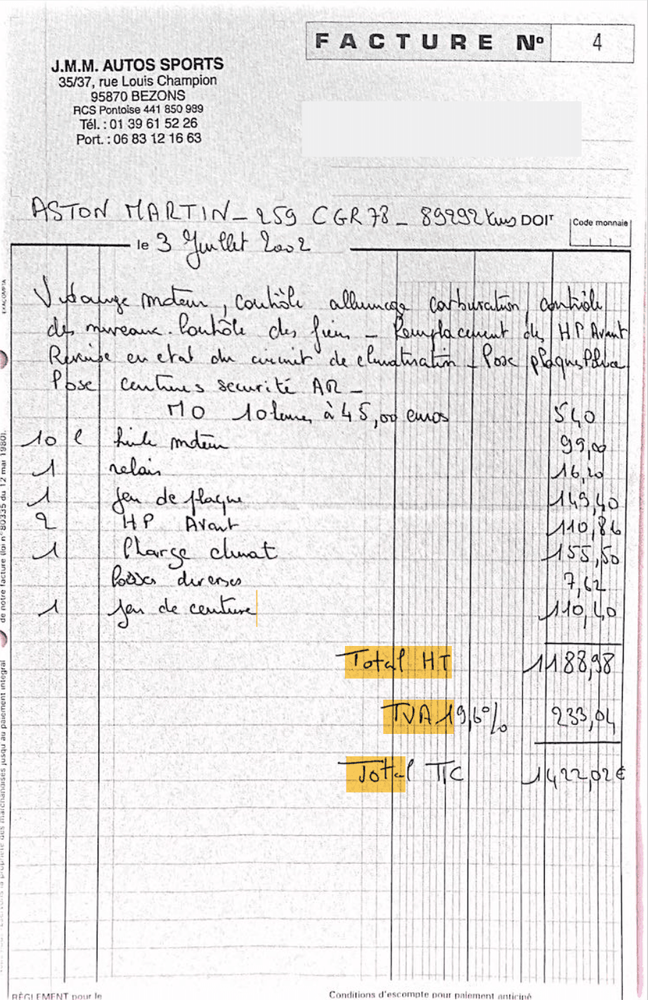 FACTURE Nº 4
J.M.M. AUTOS SPORTS
35/37, rue Louis Champion
95870 BEZONS
RCS Pontoise 441 850 989
Tél. : 01 39 61 52 26
Port. : 06 83 12 16 63
ASTON MARTIN - 259 CGR 78 - 89292 kms DOIT
Code monnaie
le 3 Juillet 2002
Vidange moteur, contrôle allumage carburation, contrôle
des niveaux. Contrôle des freins - Remplacement des HP Avant
Remise en etat du circuit de climatisation - Pose plaques Police
Pose ceintures securité AR -
MO 10 heures à 45,00 euros 540
10 l huile moteur 99,00
1 relais 16,20
1 jeu de plaque 149,40
2 HP Avant 110,86
1 Charge climat 155,50
diverses 7,62
1 jeu de ceinture 110,40
Total HT 1188,98
TVA 19,6% 233,04
Total TTC 1422,02 €
EXACOMPTA
de notre facture (loi n° 80335 du 12 mai 1980).
des marchandises jusqu'au paiement intégral
RÈGLEMENT pour le
Conditions d'escompte pour paiement anticipé